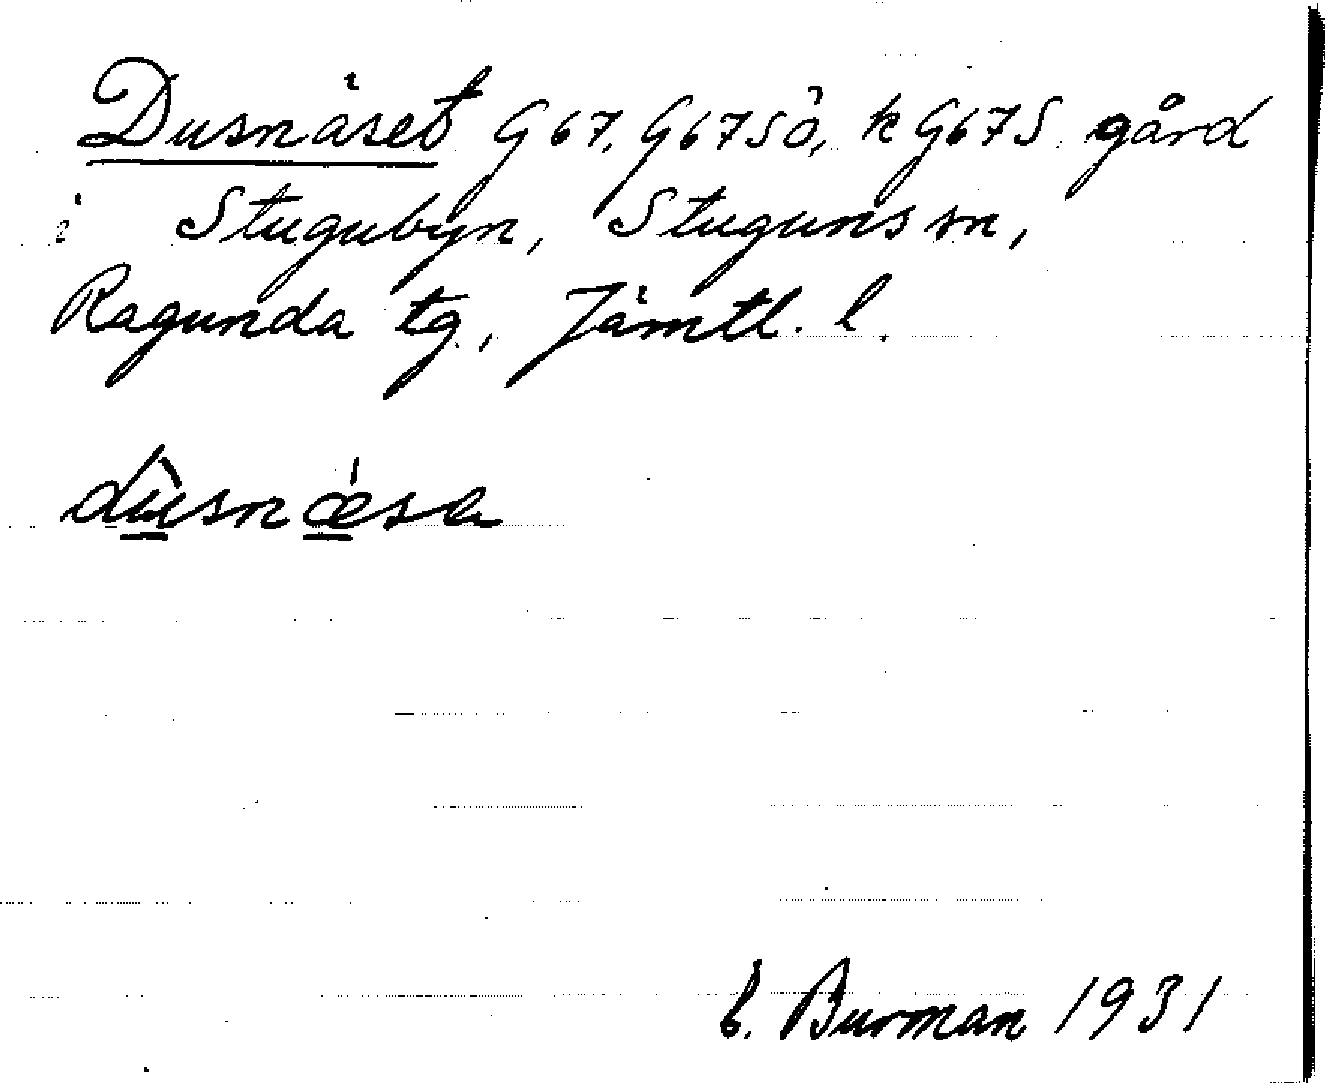 Dusnäset G67, G67SÖ, k G67S. gård
i Stugubyn, Stuguns sn,
Ragunda tg., Jämtl. l.
dùsnǽsa
E. Burman 1931